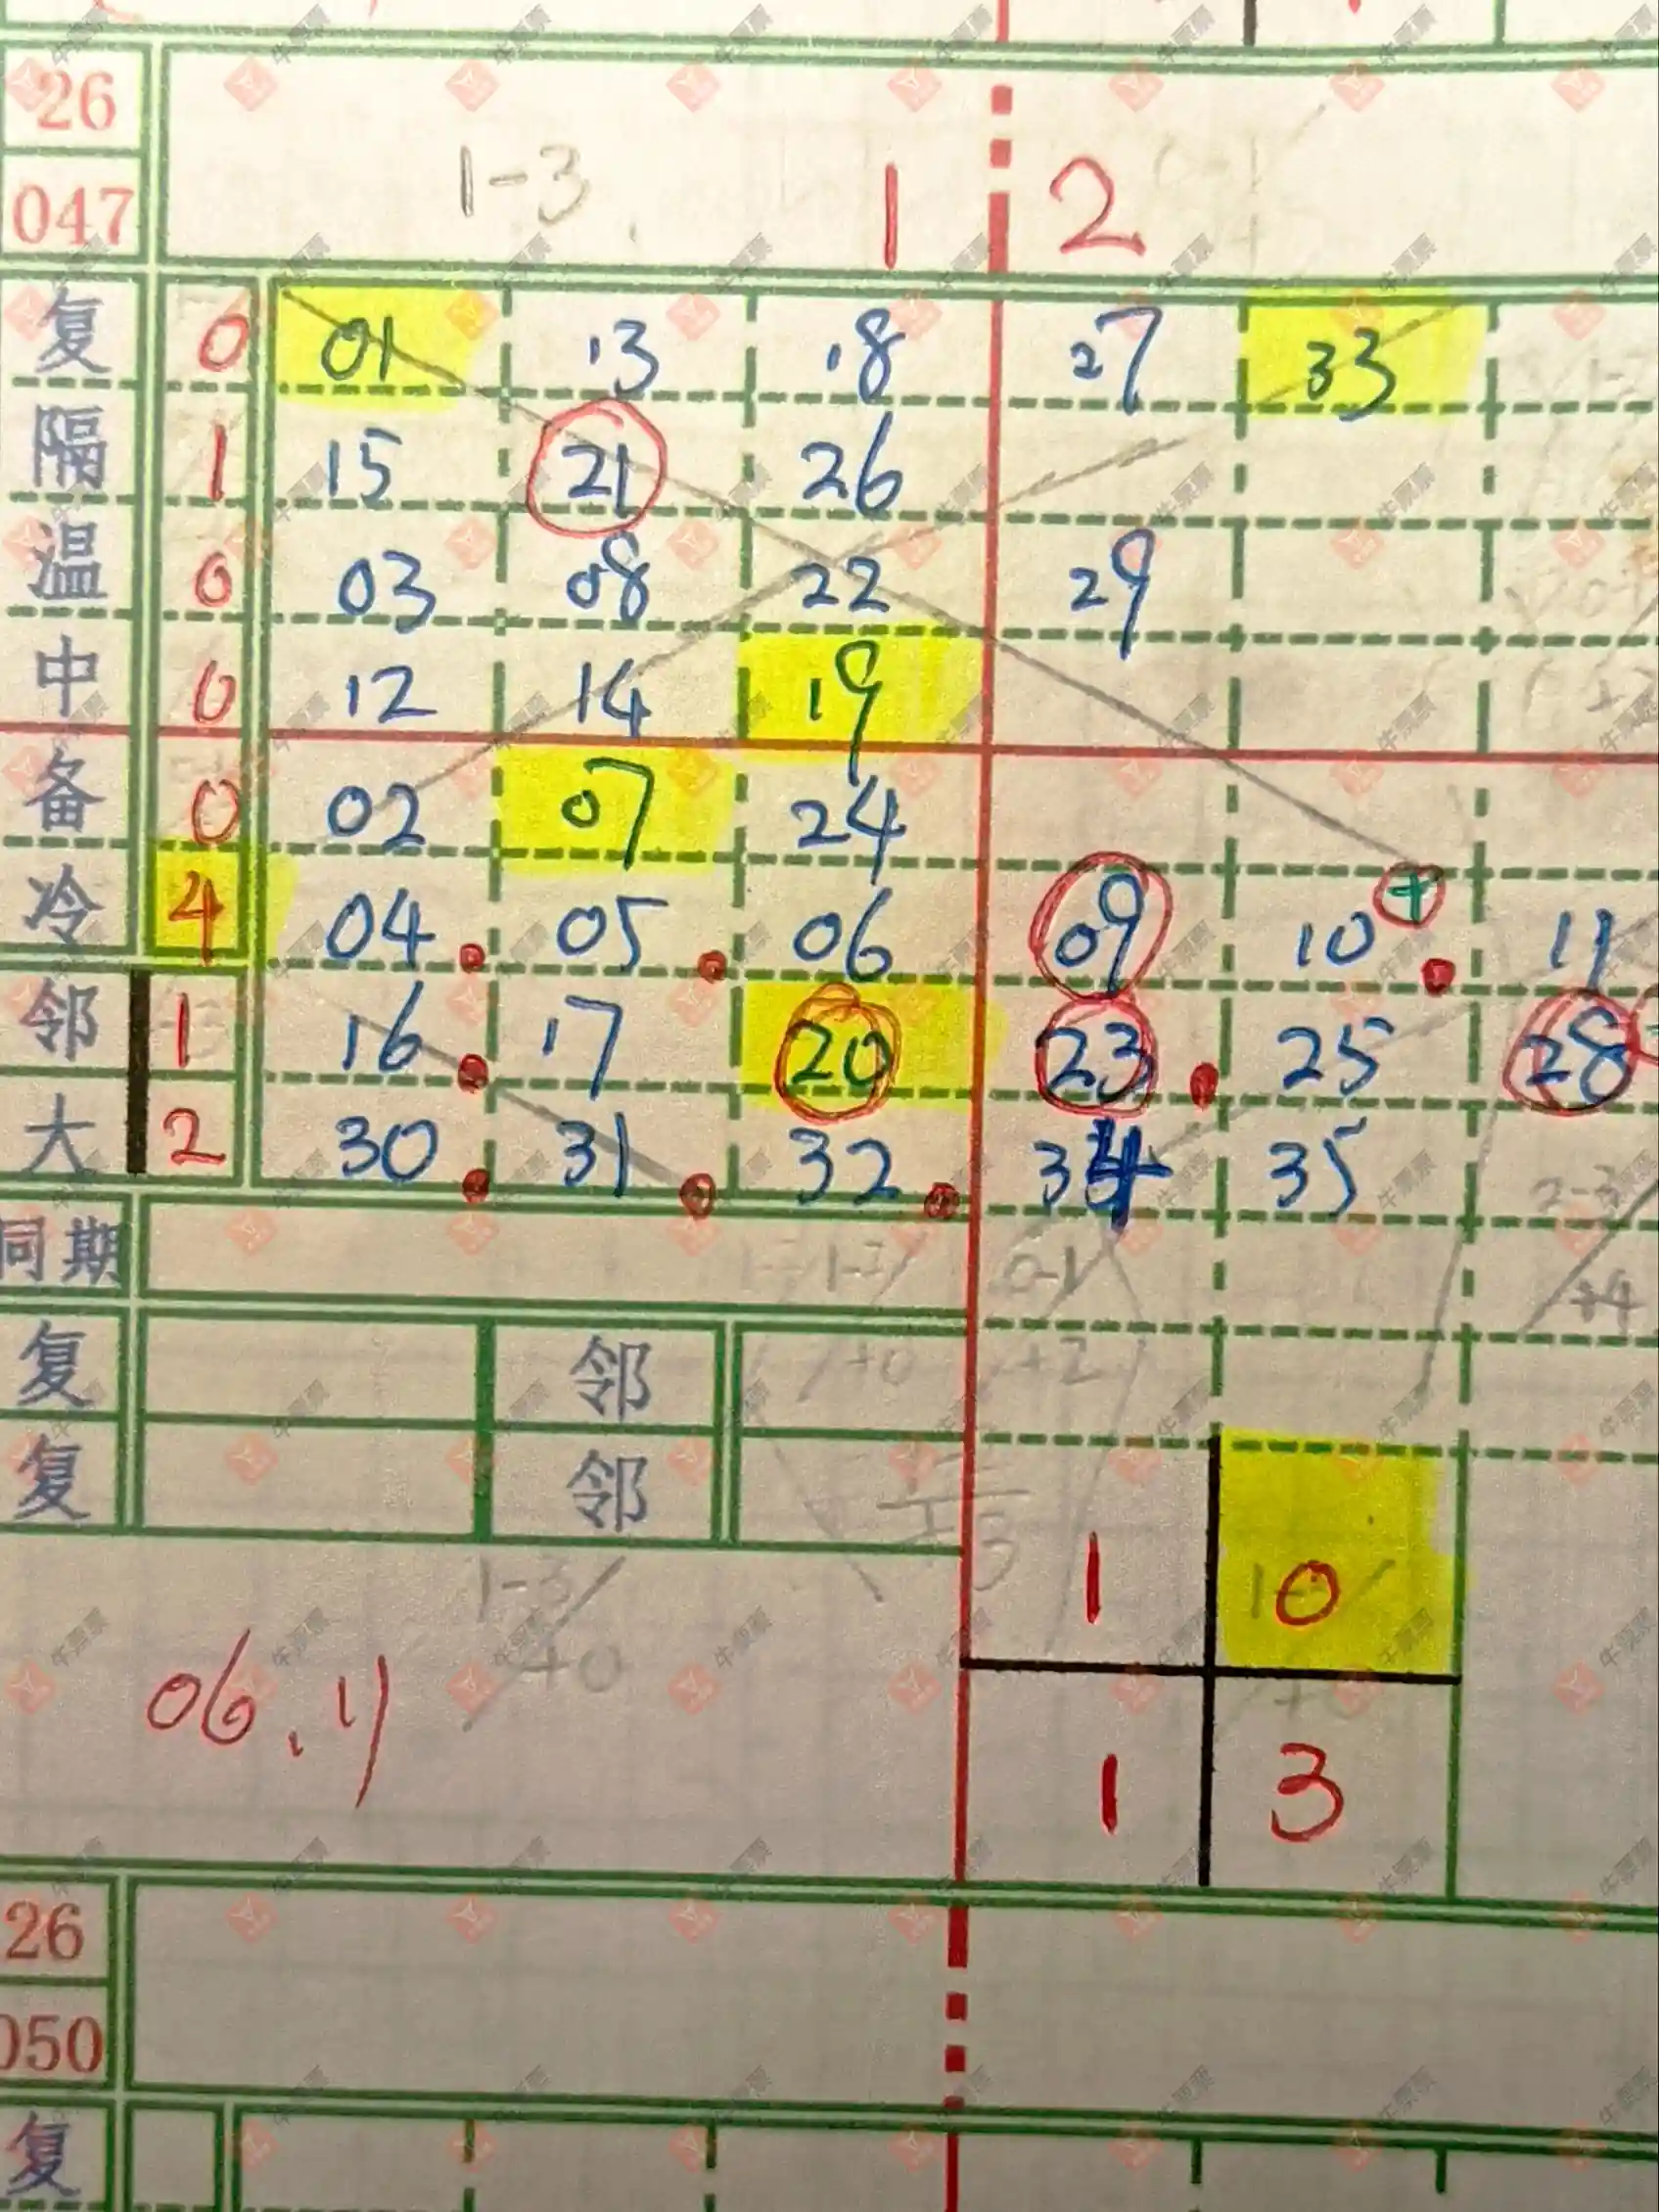 26
047 1-3 1 2
复 0 01 13 18 27 33
隔 1 15 21 26
温 0 03 08 22 29
中 0 12 14 19
备 0 02 07 24
冷 4 04 05 06 09 10 + 11
邻 1 16 17 20 23 25 28
大 2 30 31 32 34 35
2-3
同期 1-2 0-1 +4
复 邻 +0 +2
复 邻
1-3 1 0
+0
06.11
1 3
26
050
复
牛票票